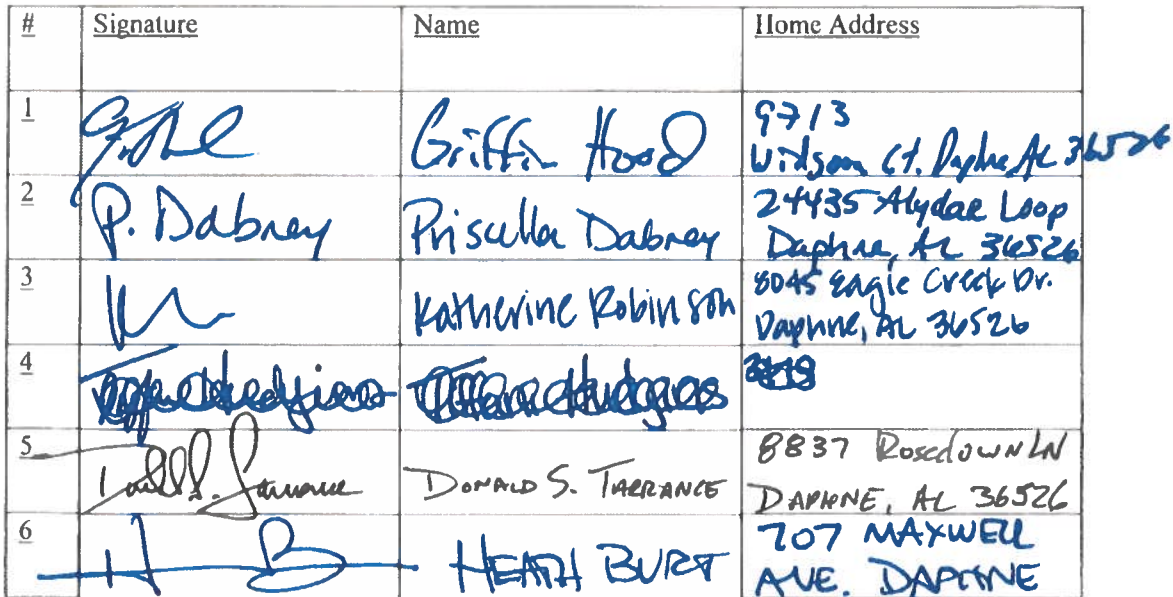 # Signature Name Home Address
1 Griffin Hood 9713
Ct. Daphne, AL 36526
2 P. Dabney Priscilla Dabney 24435 Alydar Loop
Daphne, AL 36526
3 Katherine Robinson 8045 Eagle Creek Dr.
Daphne, AL 36526
4
5 Donald S. Tarrance DONALD S. TARRANCE 8837 Rosedown LN
DAPHNE, AL 36526
6 H B HEATH BURT 707 MAXWELL
AVE. DAPHNE